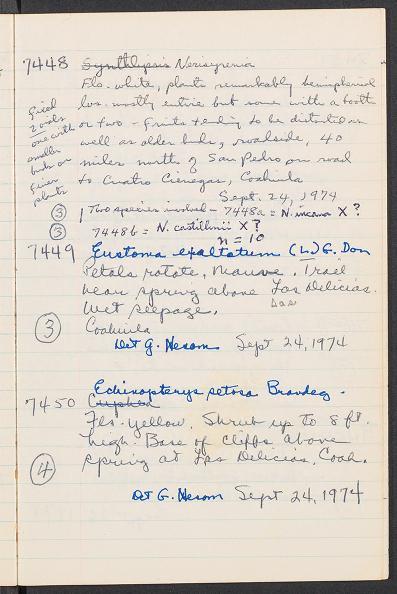 7448 Synthlipsis Nerisyrenia
Fls. white, plants remarkably hemispherical
lvs. mostly entire but some with a tooth
or two - fruits tending to be distorted as
well as older buds, roadside, 40
miles north of San Pedro on road
to Cuatro Cienegas, Coahuila
Sept. 24, 1974
2 vials
one with
smaller
buds or
finer
plants
③ Two species involved - 7448a = N. incana X ?
③ 7448b = N. castillonii X ?
n = 10
7449 Eustoma exaltatum (L.) G. Don
Petals rotate, mauve. Trail
near spring above Las Delicias.
Las
Wet seepage.
③ Coahuila
Det G. Nesom Sept 24, 1974
Echinopterys setosa Brandeg.
7450 Cuphea
Fls. yellow. Shrub up to 8 ft.
high. Base of cliffs above
④ spring at Las Delicias, Coah.
Det G. Nesom Sept 24, 1974